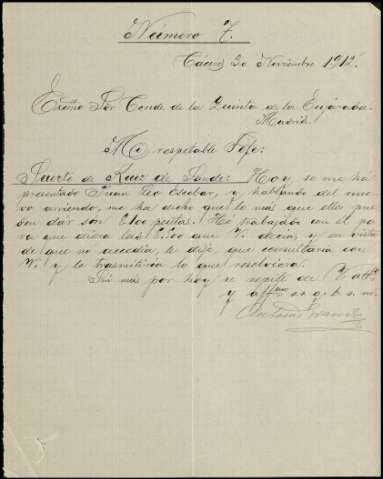 Número 7.
Cáceres 20 Noviembre 1912.
Excmo Sor Conde de la Quinta de la Enjarada.
Madrid.
Mi respetable Jefe:
Puerto de Ruiz de Sande: Hoy se me ha
presentado Juan Leo Escobar, y hablando del nue-
vo arriendo, me ha dicho que lo más que ellos pue-
den dar son 2100 pesetas. He trabajado con él pa
ra que diera las 2500 que V. decia, y en vista
de que no accedia, le dije, que consultaria con
V. y le trasmitiria lo que resolviera.
Sin más por hoy se repite de V atto
y affmo s.s. q. b. s. m.